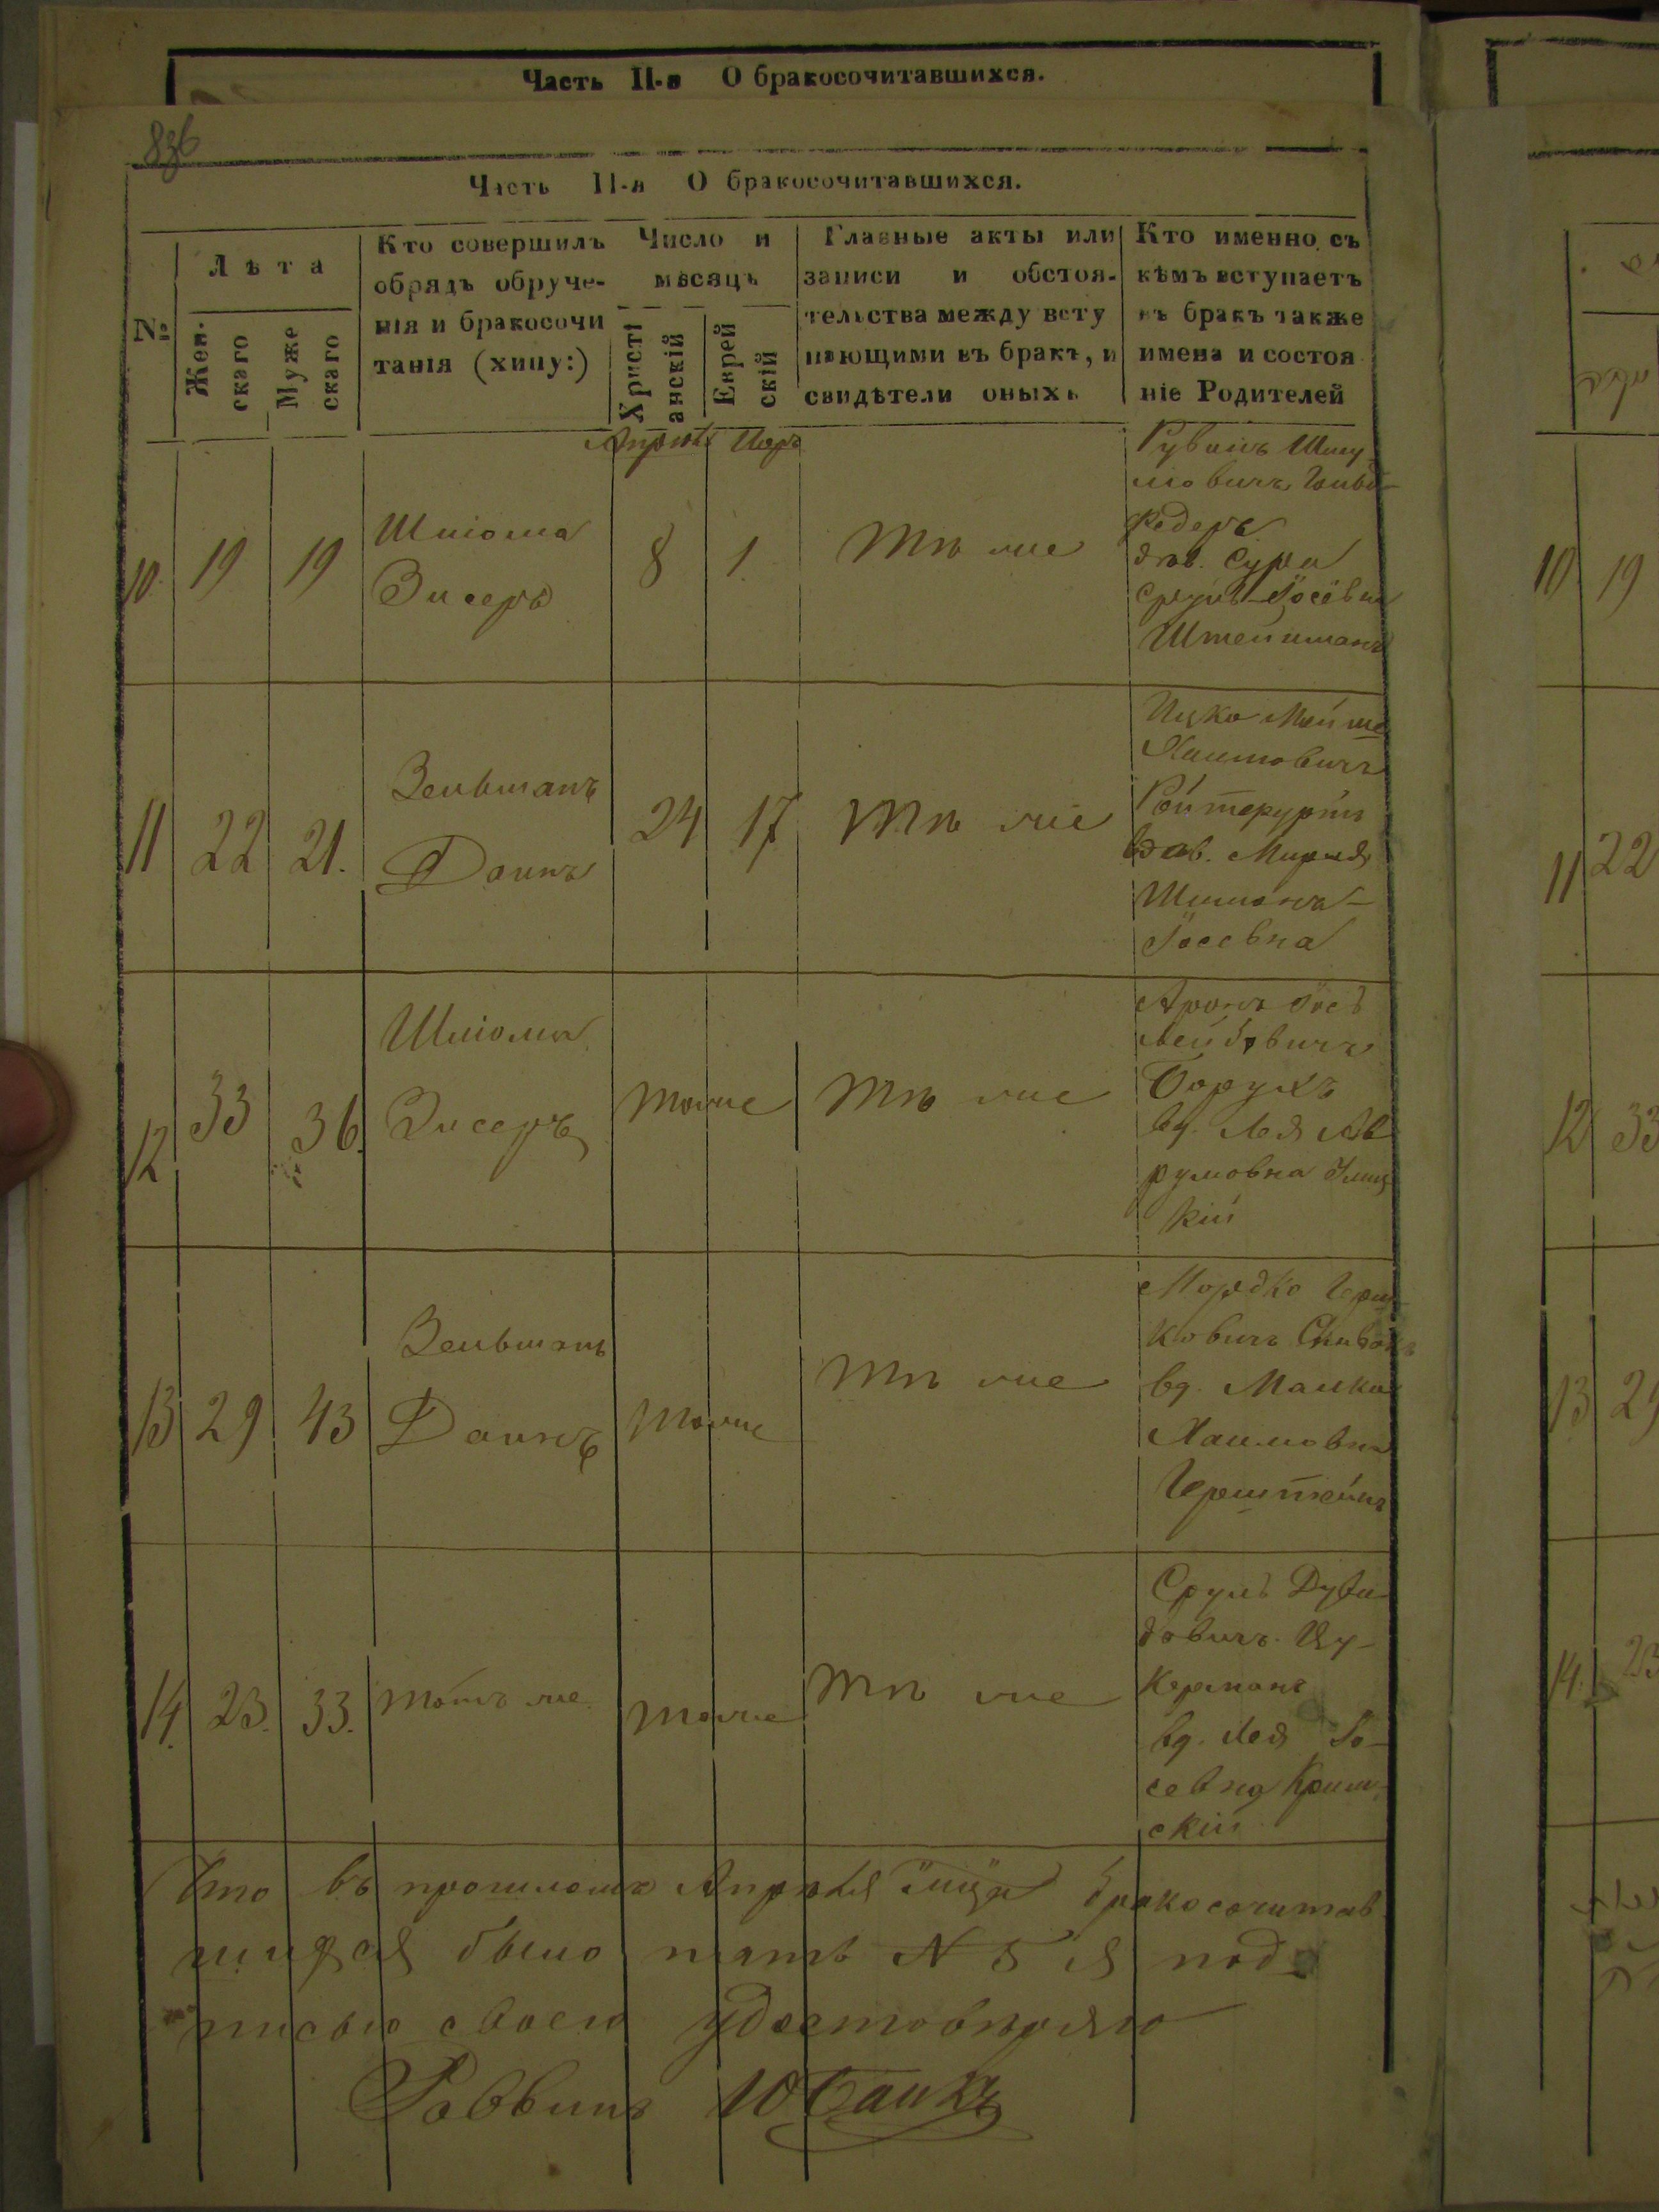 Часть II-я О бракосочитавшихся.
836
Часть II-я О бракосочитавшихся.
№
Лѣта
Жен-
скаго
Муже
скаго
Кто совершилъ
обрядъ обруче-
нія и бракосочи
танія (хипу:)
Число и
мѣсяцъ
Христі
анскій
Еврей
скій
Главные акты или
записи и обстоя-
тельства между всту
пающими въ бракъ, и
свидѣтели оныхъ
Кто именно съ
кѣмъ вступаетъ
въ бракъ также
имена и состоя
ніе Родителей
Апрѣль
10. 19 19
Шліома
Зисеръ
8 1.
Тѣ же
Рувинъ Шму
ліовичъ
федеръ
дѣв. Сура
Іосевна
Штейнманъ
11 22 21.
Зельманъ
Даинъ
24 17
Тѣ же
Ицко Мойше
Хаимовичъ
Мириля
Іосевна
12 33 36.
Шліома
Зисеръ
Тоже
Тѣ же
Аронъ Іосъ
Лейбовичъ
Борухъ
вд. Лея Ав
румовна
кій
13 29 43
Зельманъ
Даинъ
Тоже
Тѣ же
Мордко Герш
ковичъ Спивакъ
вд. Малка
Хаимовна
Герштейнъ
14. 23. 33.
Тотъ же
Тоже
Тѣ же
Сруль Дуви
довичъ Цу-
керманъ
вд. Лея Іо-
севна Крим
скій
Что въ прошломъ Апрѣлѣ м-цѣ бракосочитав
шихся было пять N 5 я под-
писью своею удостовѣряю
Раввинъ Ю Банкъ
10 19
11 22
12 33
13 29
14. 23